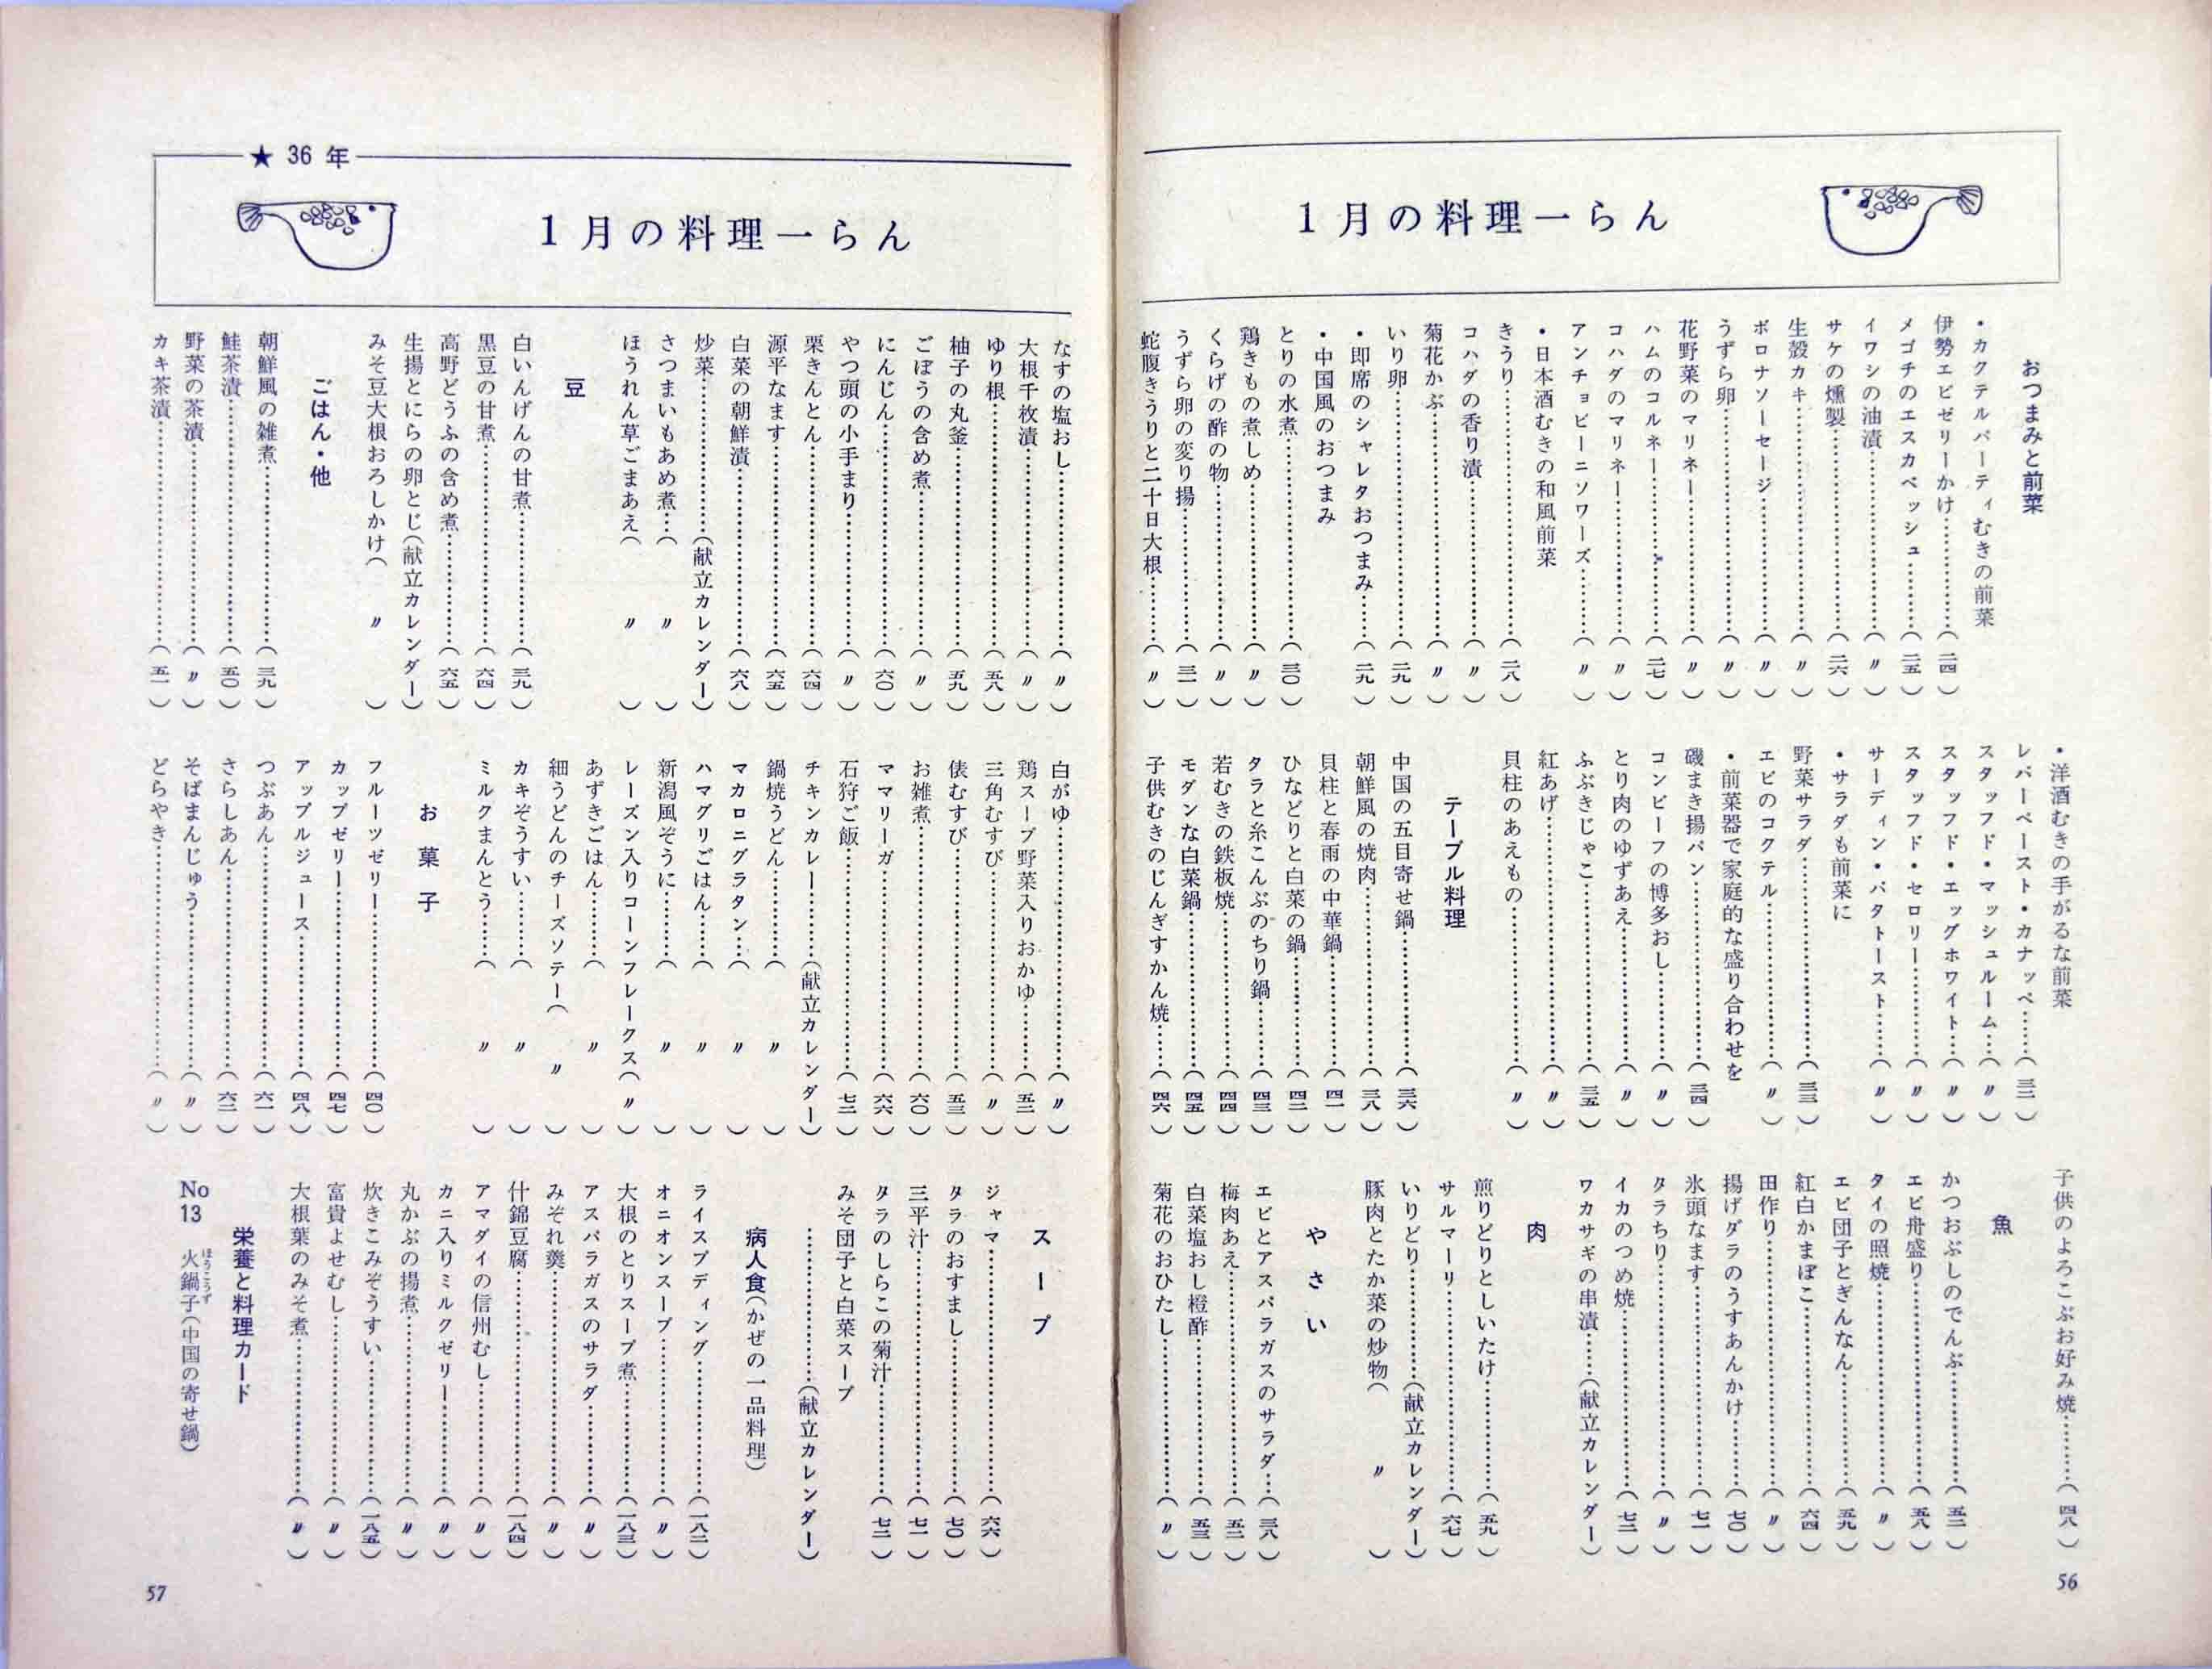 1月の料理一らん
おつまみと前菜
・カクテルパーティむきの前菜
伊勢エビゼリーかけ…………(二四)
メゴチのエスカベッシュ………(二五)
イワシの油漬…………(〃)
サケの燻製…………(二六)
生殻カキ…………(〃)
ボロナソーセージ…………(〃)
うずら卵…………(〃)
花野菜のマリネー…………(〃)
ハムのコルネー…………(二七)
コハダのマリネー…………(〃)
アンチョビーニソワーズ………(〃)
・日本酒むきの和風前菜
きうり…………(二八)
コハダの香り漬…………(〃)
菊花かぶ…………(〃)
いり卵…………(二九)
・即席のシャレタおつまみ……(二九)
・中国風のおつまみ
とりの水煮…………(三〇)
鶏きもの煮しめ…………(〃)
くらげの酢の物…………(〃)
うずら卵の変り揚…………(三一)
蛇腹きうりと二十日大根………(〃)
・洋酒むきの手がるな前菜
レバーペースト・カナッペ……(三二)
スタッフド・マッシュルーム…(〃)
スタッフド・エッグホワイト…(〃)
スタッフド・セロリー…………(〃)
サーディン・バタトースト……(〃)
・サラダも前菜に
野菜サラダ…………(三三)
エビのコクテル…………(〃)
・前菜器で家庭的な盛り合わせを
磯まき揚パン…………(三四)
コンビーフの博多おし………(〃)
とり肉のゆずあえ…………(〃)
ふぶきじゃこ…………(三五)
紅あげ…………(〃)
貝柱のあえもの…………(〃)
テーブル料理
中国の五目寄せ鍋…………(三六)
朝鮮風の焼肉…………(三八)
貝柱と春雨の中華鍋…………(四一)
ひなどりと白菜の鍋…………(四二)
タラと糸こんぶのちり鍋………(四三)
若むきの鉄板焼…………(四四)
モダンな白菜鍋…………(四五)
子供むきのじんぎすかん焼……(四六)
子供のよろこぶお好み焼………(四八)
魚
かつおぶしのでんぶ…………(五二)
エビ舟盛り…………(五八)
タイの照焼…………(〃)
エビ団子とぎんなん…………(五九)
紅白かまぼこ…………(六四)
田作り…………(〃)
揚げダラのうすあんかけ………(七〇)
氷頭なます…………(七一)
タラちり…………(〃)
イカのつめ焼…………(七二)
ワカサギの串漬……(献立カレンダー)
肉
煎りどりとしいたけ…………(五九)
サルマーリ…………(六七)
いりどり…………(献立カレンダー)
豚肉とたか菜の炒物(〃)
やさい
エビとアスパラガスのサラダ…(三八)
梅肉あえ…………(五二)
白菜塩おし橙酢…………(五三)
菊花のおひたし…………(〃)
56
★ 36 年
1月の料理一らん
なすの塩おし…………(〃)
大根千枚漬…………(〃)
ゆり根…………(五八)
柚子の丸釜…………(五九)
ごぼうの含め煮…………(〃)
にんじん…………(六〇)
やつ頭の小手まり…………(〃)
栗きんとん…………(六四)
源平なます…………(六五)
白菜の朝鮮漬…………(六八)
炒菜…………(献立カレンダー)
さつまいもあめ煮…(〃)
ほうれん草ごまあえ(〃)
豆
白いんげんの甘煮…………(三九)
黒豆の甘煮…………(六四)
高野どうふの含め煮…………(六五)
生揚とにらの卵とじ(献立カレンダー)
みそ豆大根おろしかけ(〃)
ごはん・他
朝鮮風の雑煮…………(三九)
鮭茶漬…………(五〇)
野菜の茶漬…………(〃)
カキ茶漬…………(五一)
白がゆ…………(〃)
鶏スープ野菜入りおかゆ………(五二)
三角むすび…………(〃)
俵むすび…………(五三)
お雑煮…………(六〇)
ママリーガ…………(六六)
石狩ご飯…………(七二)
チキンカレー………(献立カレンダー)
鍋焼うどん…………(〃)
マカロニグラタン…(〃)
ハマグリごはん……(〃)
新潟風ぞうに………(〃)
レーズン入りコーンフレークス(〃)
あずきごはん………(〃)
細うどんのチーズソテー(〃)
カキぞうすい………(〃)
ミルクまんとう……(〃)
お菓子
フルーツゼリー…………(四〇)
カップゼリー…………(四七)
アップルジュース…………(四八)
つぶあん…………(六一)
さらしあん…………(六二)
そばまんじゅう…………(〃)
どらやき…………(〃)
スープ
ジャマ…………(六六)
タラのおすまし…………(七〇)
三平汁…………(七一)
タラのしらこの菊汁…………(七二)
みそ団子と白菜スープ
…………(献立カレンダー)
病人食(かぜの一品料理)
ライスプディング…………(一八二)
オニオンスープ…………(〃)
大根のとりスープ煮…………(一八三)
アスパラガスのサラダ………(〃)
みぞれ羹…………(〃)
什錦豆腐…………(一八四)
アマダイの信州むし…………(〃)
カニ入りミルクゼリー………(〃)
丸かぶの揚煮…………(〃)
炊きこみぞうすい…………(一八五)
富貴よせむし…………(〃)
大根葉のみそ煮…………(〃)
栄養と料理カード
No 13 火鍋子(中国の寄せ鍋)
ほうこうず
57